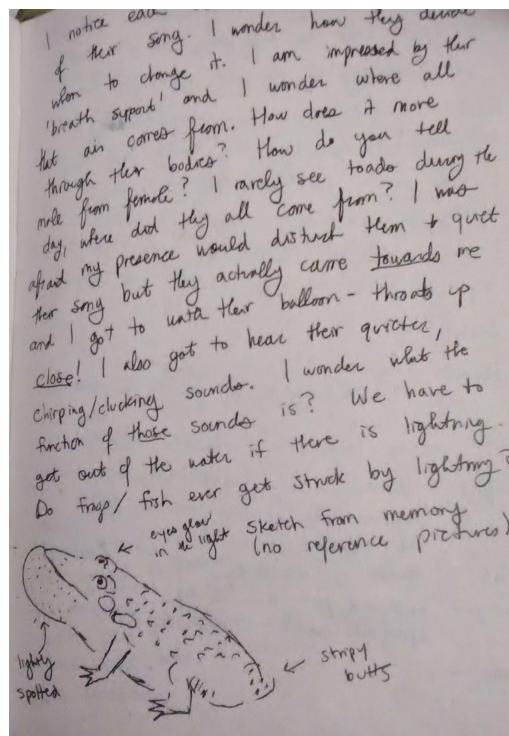 I notice each
of their song. I wonder how they decide
when to change it. I am impressed by their
'breath support' and I wonder where all
that air comes from. How does it move
through their bodies? How do you tell
male from female? I rarely see toads during the
day, where did they all come from? I was
afraid my presence would disturb them + quiet
their song but they actually came towards me
and I got to watch their balloon-throats up
close! I also got to hear their quieter,
chirping/clucking sounds. I wonder what the
function of those sounds is? We have to
get out of the water if there is lightning.
Do frogs/fish ever get struck by lightning?
eyes glow
in the light
sketch from memory
(no reference pictures)
lightly
spotted
stripy
butts